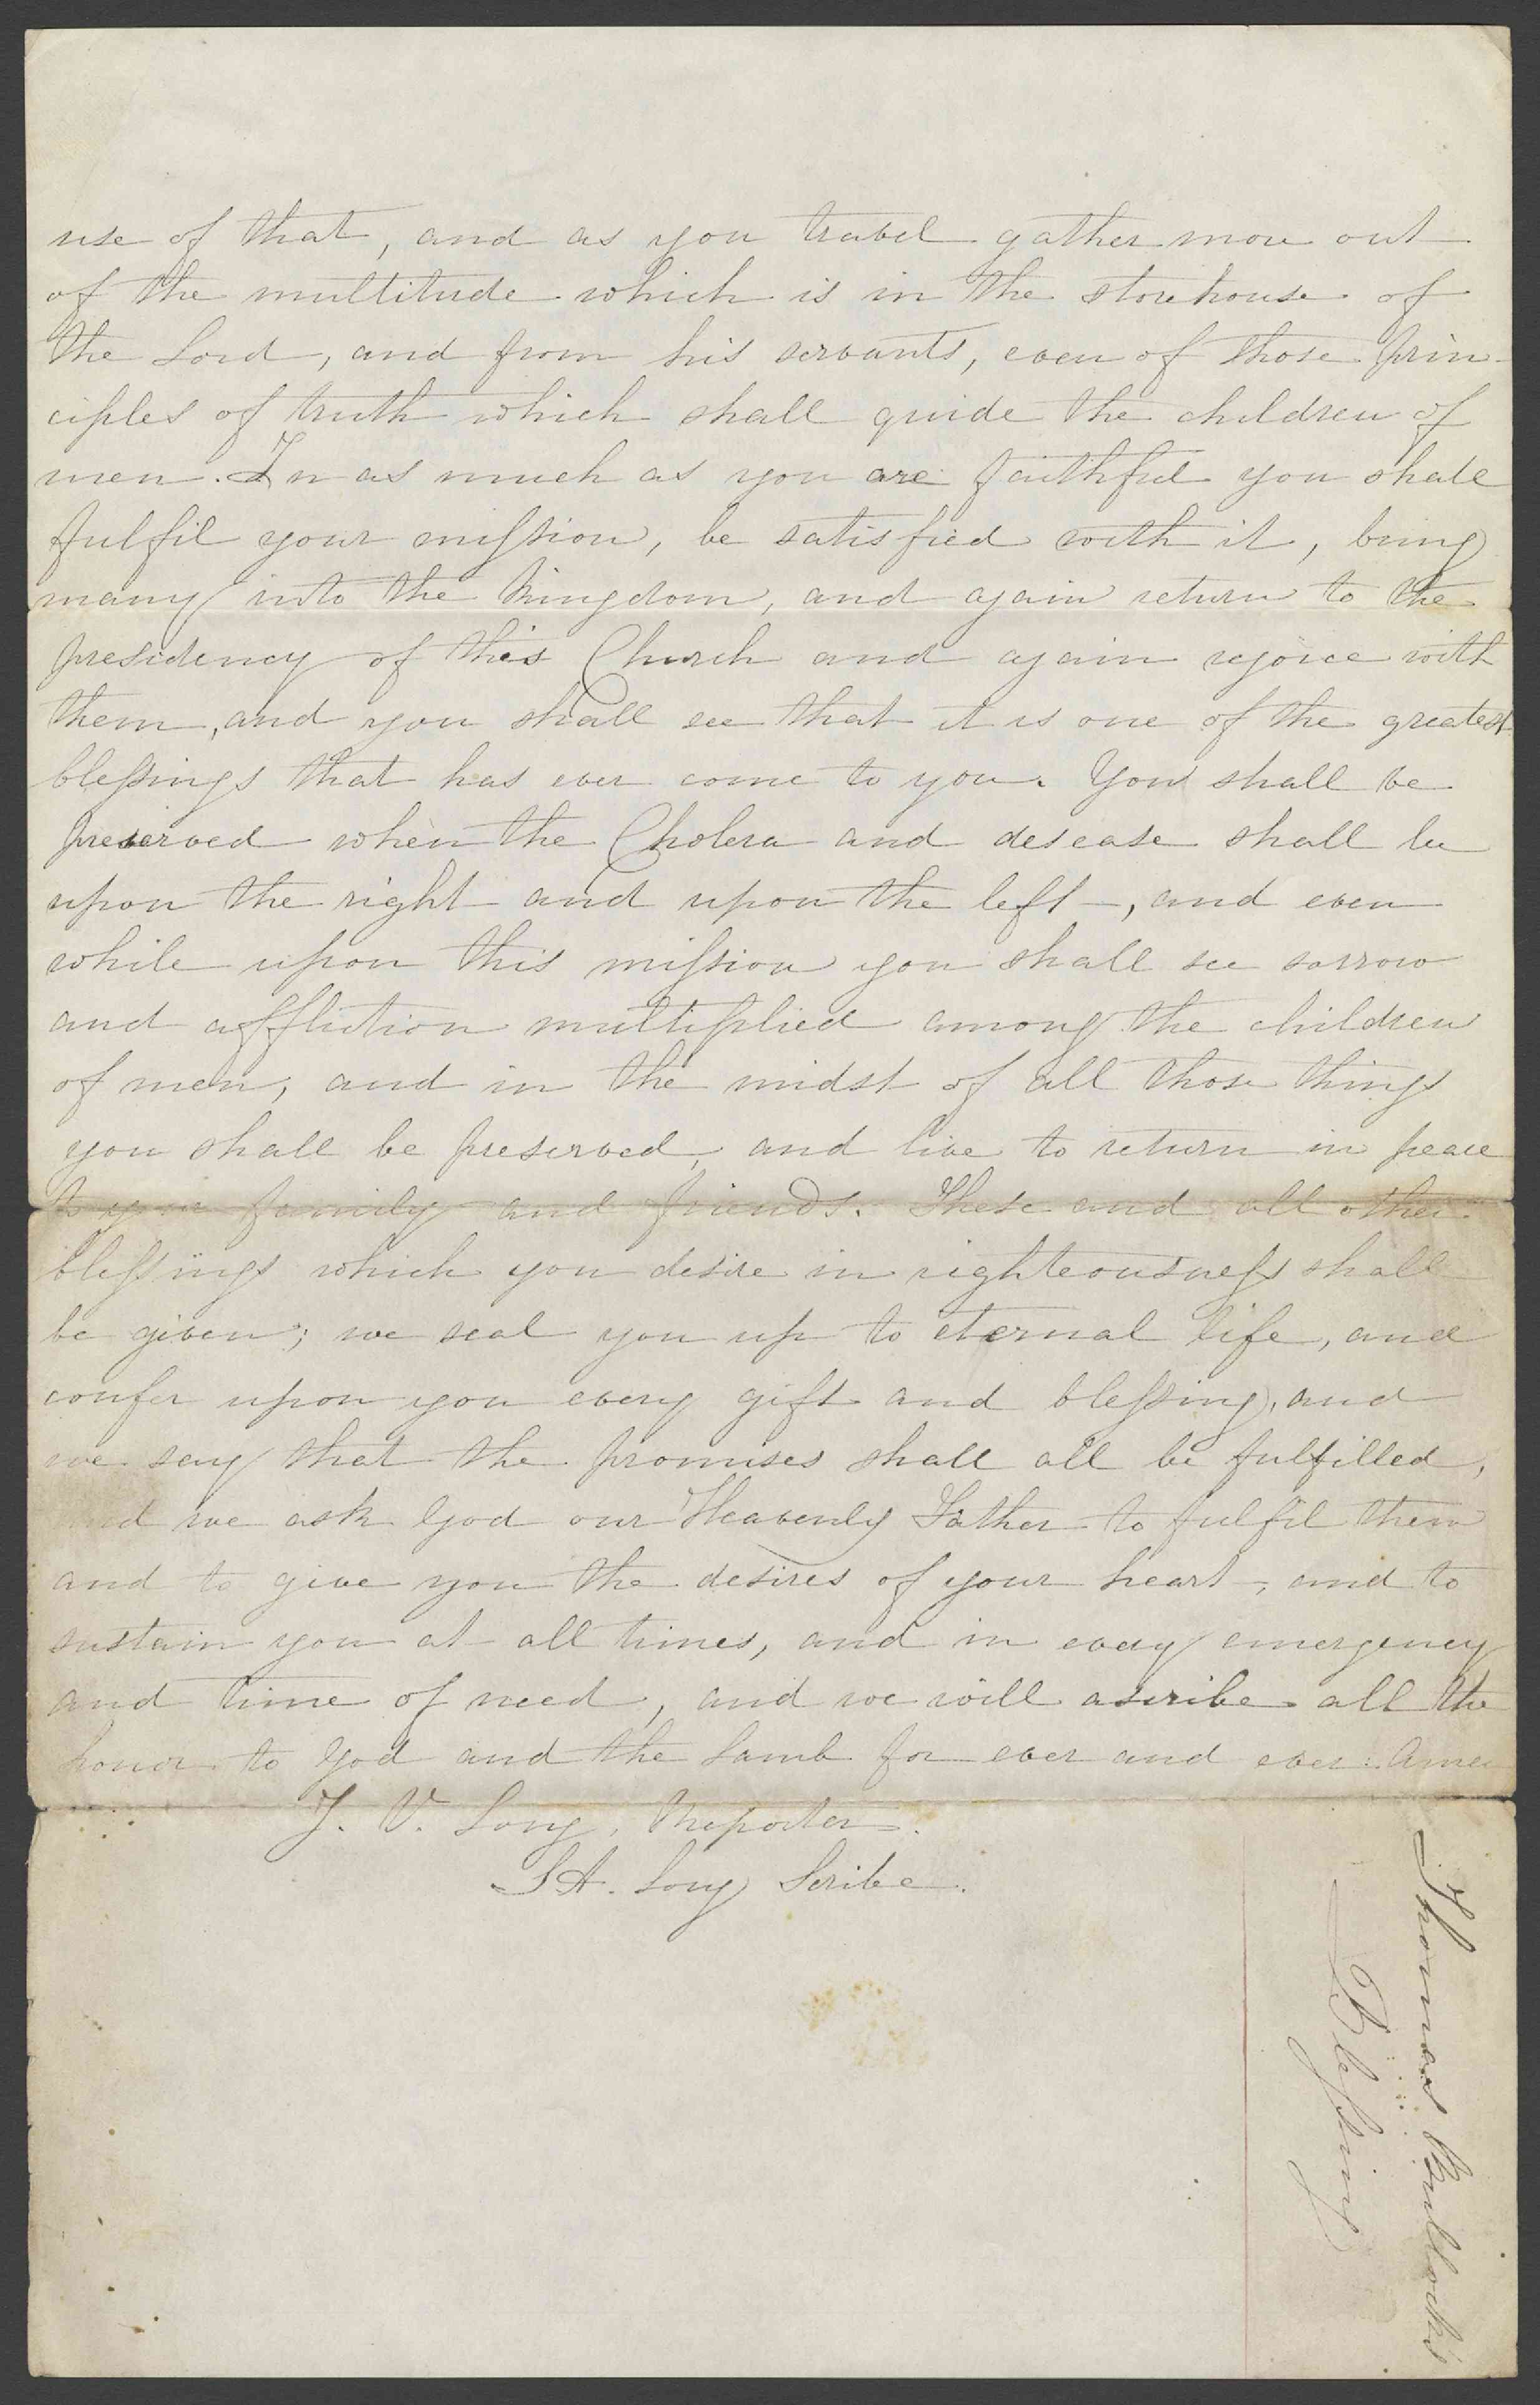 use of that, and as you travel gather more out
of the multitude which is in the storehouse of
the Lord, and from his servants, even of those prin-
ciples of truth which shall guide the children of
men. In as much as you are faithful you shall
fulfil your mission, be satisfied with it, bring
many into the kingdom, and again return to the
presidency of this Church and again rejoice with
them, and you shall see that it is one of the greatest
blessings that has ever come to you. You shall be
preserved when the Cholera and desease shall be
upon the right and upon the left, and even
while upon this mission you shall see sorrow
and affliction multiplied among the children
of men, and in the midst of all those things
you shall be preserved, and live to return in peace
to your family and friends. These and all other
blessings which you desire in righteousness shall
be given; we seal you up to eternal life, and
confer upon you every gift and blessing, and
we say that the promises shall all be fulfilled,
and we ask God our Heavenly Father to fulfil them
and to give you the desires of your heart, and to
sustain you at all times, and in every emergency
and time of need, and we will ascribe all the
honor to God and the Lamb for ever and ever: Amen
J. V. Long, Reporter.
S A. Long Scribe.
Thomas Bullock's
Blessing